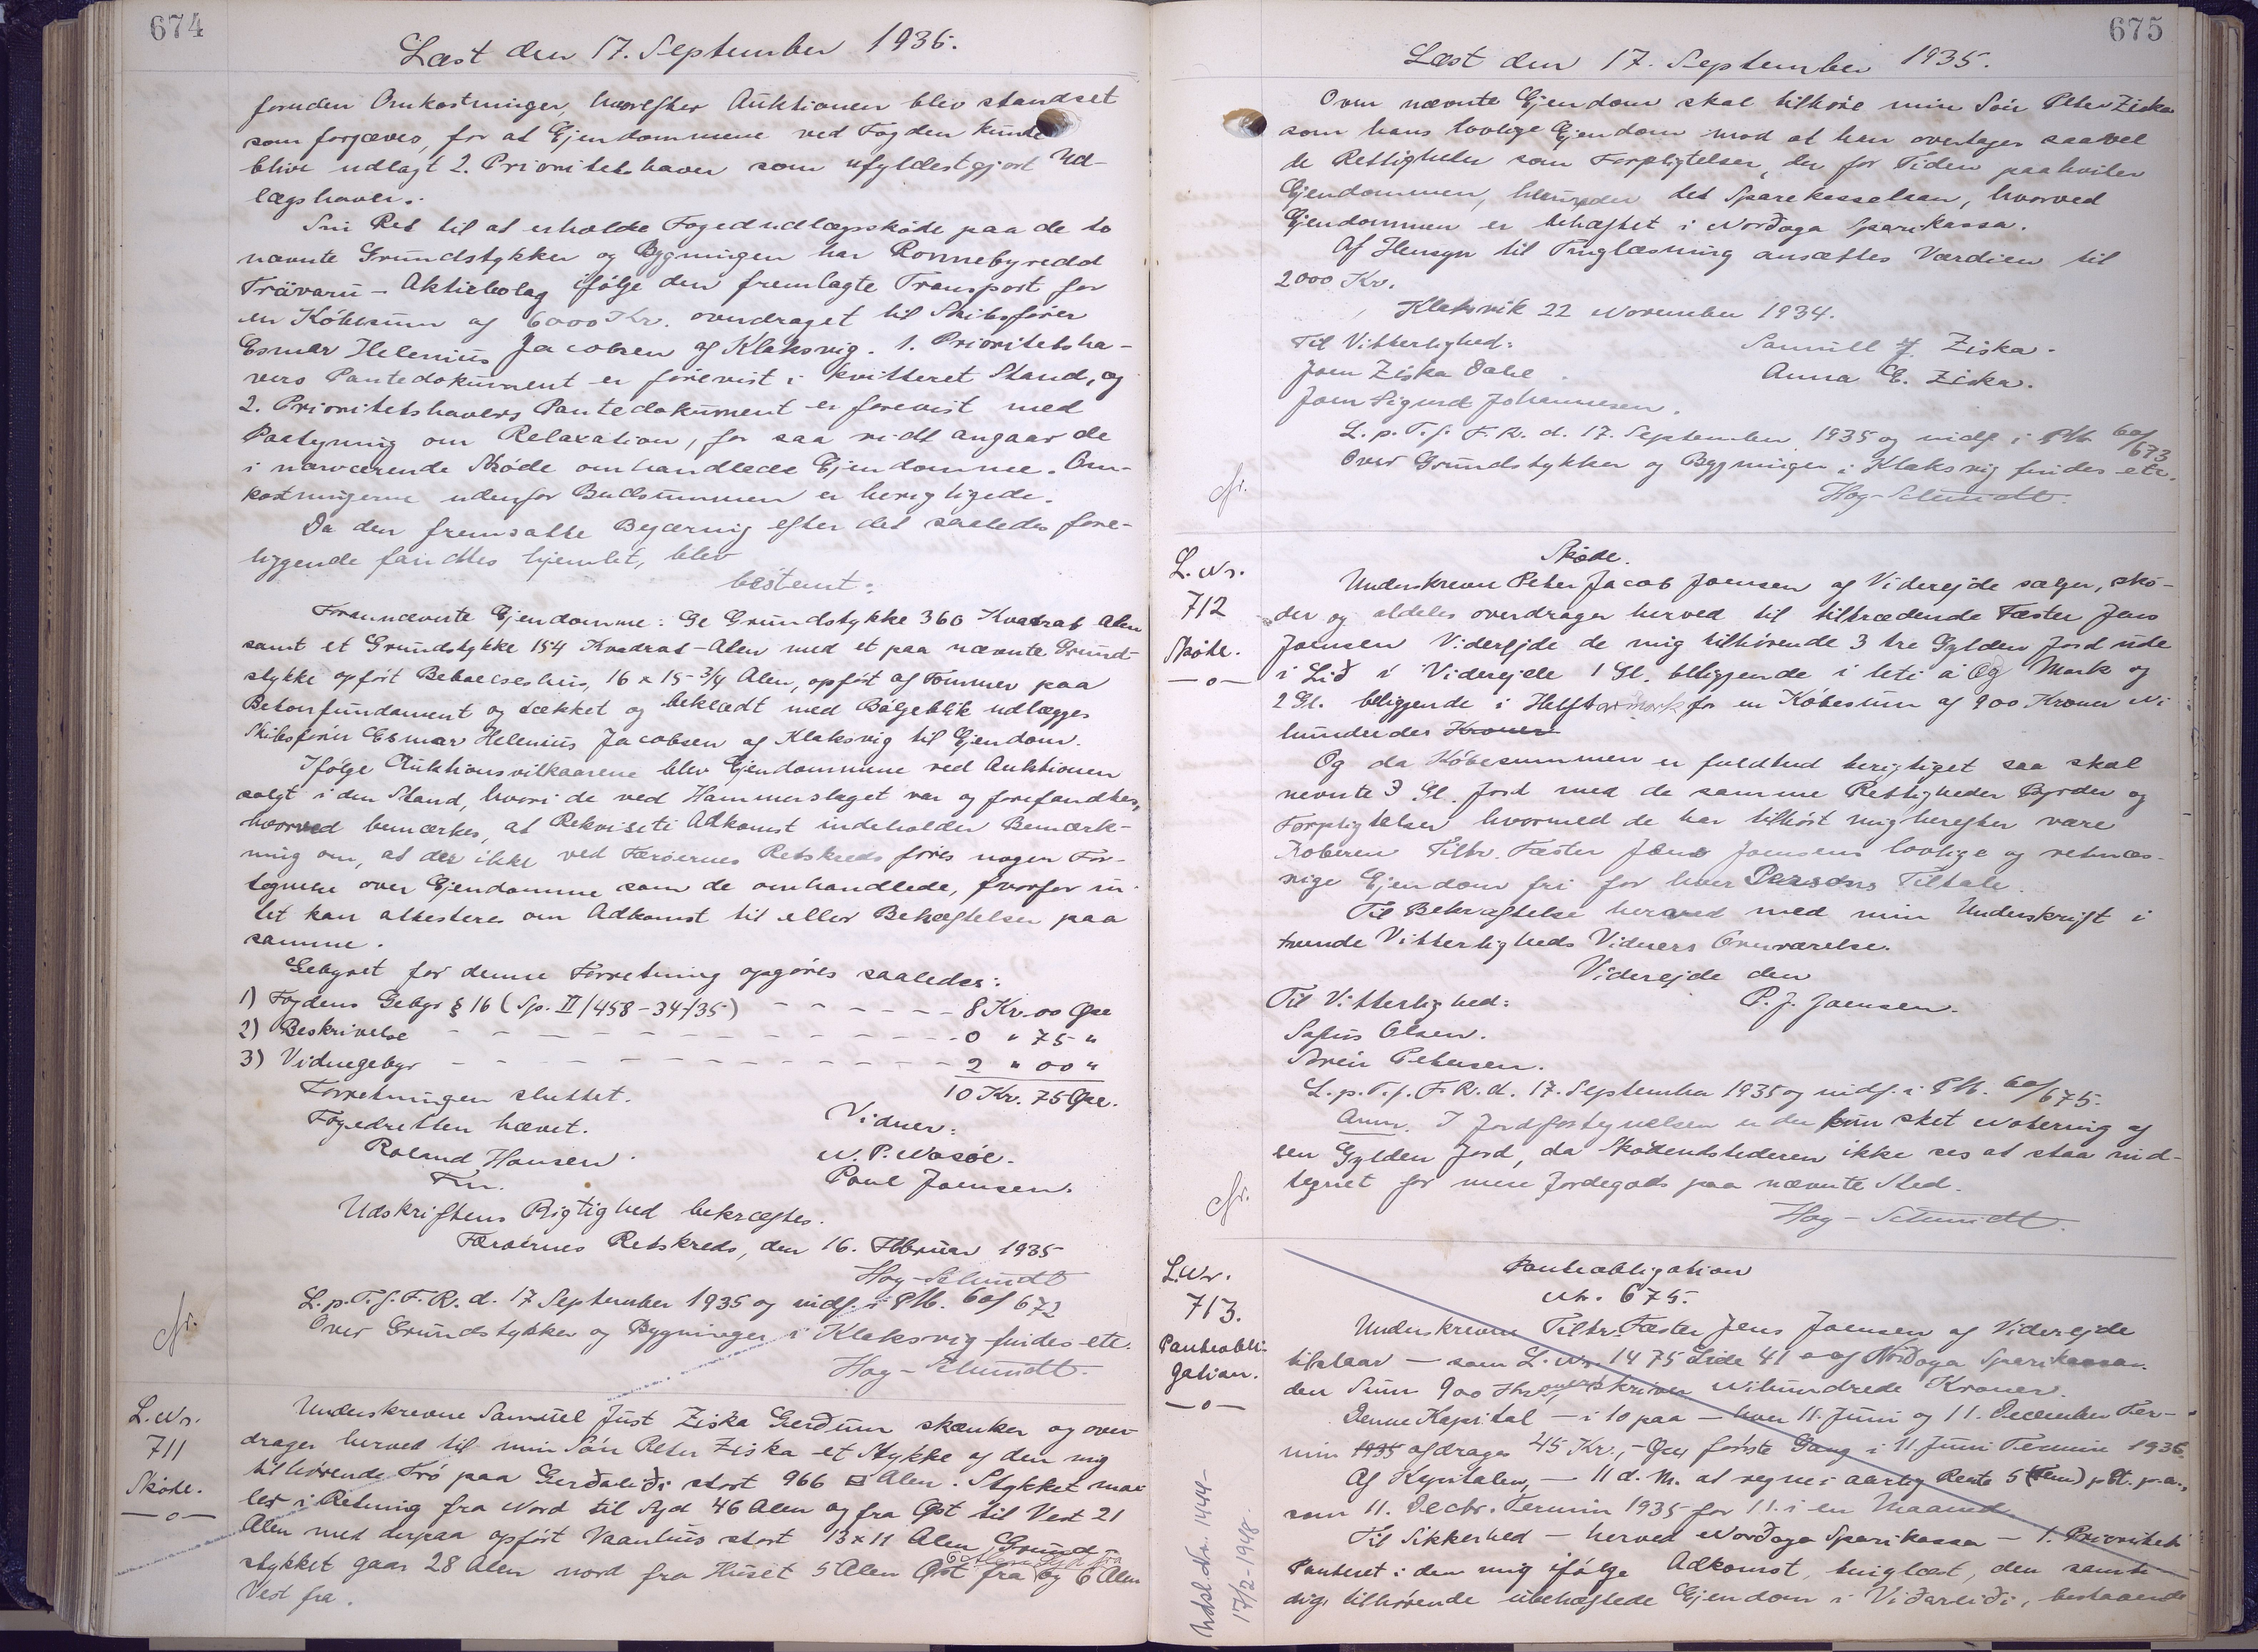 674
Læst den 17. September 1935.
foruden Omkostninger, hvorefter Auktionen blev standset
som forgæves, for at Ejendommene ved Fogden kunde
blive udlagt 2. Prioritetshaver som ufyldestgjort Ud-
lægshaver.
Sin Ret til at erholde Fogedudlægsskøde paa de to
nævnte Grundstykker og Bygningen har Ronnebyredd
Trävaru-Aktiebolag ifølge den fremlagte Transport for
en Købesum af 6000 Kr. overdraget til Skibsfører
Esmar Helenius Jacobsen af Klaksvig. 1. Prioritetsha-
vers Pantedokument er forevist i kvitteret Stand, og
2. Prioritetshavers Pantedokument er forevist med
Paategning om Relaxation, for saa vidt angaar de
i nærværende Skøde omhandlede Ejendomme. Om-
kostningerne udenfor Budsummen er berigtigede.
Da den fremsatte Begæring efter det saaledes fore-
liggende fandtes hjemlet, blev
bestemt:
Forannævnte Ejendomme: Et Grundstykke 360 Kvadrat Alen
samt et Grundstykke 154 Kvadrat-Alen med et paa nævnte Grund-
stykke opført Beboelseshus, 16 x 15-3/4 Alen, opført af Tømmer paa
Betonfundament og tækket og beklædt med Bølgeblik udlægges
Skibsfører Esmar Helenius Jacobsen af Klaksvig til Ejendom.
Ifølge Auktionsvilkaarene blev Ejendommene ved Auktionen
solgt i den Stand, hvori de ved Hammerslaget var og forefandtes,
hvorved bemærkes, at Rekvisiti Adkomst indeholder Bemærk-
ning om, at der ikke ved Færøernes Retskreds føres nogen For-
tegnelse over Ejendomme som de omhandlede, hvorfor in-
tet kan attesteres om Adkomst til eller Behæftelser paa
samme.
Gebyret for denne Forretning opgøres saaledes:
1) Fogdens Gebyr § 16 (Sp. II/458-34/35) - - - - - - 8 Kr. 00 Øre
2) Beskrivelse - - - - - - - - - - 0 " 75 "
3) Vidnegebyr - - - - - - - - - - 2 " 00 "
Forretningen sluttet. 10 Kr. 75 Øre.
Fogedretten hævet. Vidner:
Roland Hansen. N. P. Nosóe.
Fm. Poul Joensen.
Udskriftens Rigtighed bekræftes.
Færøernes Retskreds, den 16. Februar 1935
Hoy-Schmidt
L. p. T. f. F. R. d. 17 September 1935 og indf. i PM. 60/672
Over Grundstykker og Bygninger i Klaksvig findes etc.
Hoy-Schmidt.
L. Nr.
711
Skøde.
—o—
Underskrevne Samuel Just Ziska Gerðum skænker og over-
drager herved til min Søn Peter Ziska et Stykke af den mig
tilhørende Trø paa Gerðaliði stort 966 □ Alen. Stykket maa-
ler i Retning fra Nord til Syd 46 Alen og fra Øst til Vest 21
Alen med derpaa opført Vaanhus stort 13 x 11 Alen, Grund-
stykket gaar 28 Alen nord fra Huset 5 Alen Øst fra 6 Alen Syd fra og 6 Alen
Vest fra.
675
Læst den 17. September 1935.
Oven nævnte Ejendom skal tilhøre min Søn Peter Ziska
som hans lovlige Ejendom mod at han overtager saavel
de Rettigheder som Forpligtelser, der for Tiden paahviler
Ejendommen, herunder det Sparekasselaan, hvorved
Ejendommen er behæftet i Norðoya Sparikassa.
Af Hensyn til Tinglæsning ansættes Værdien til
2000 Kr.
Klaksvik 22 November 1934.
Til Vitterlighed: Samuell J. Ziska.
Joen Ziska Dahl. Anna E. Ziska.
Joen Sigurd Johannesen.
L. p. T. f. F. R. d. 17. September 1935 og indf. i PM. 60/673
Over Grundstykker og Bygninger i Klaksvig findes etc.
Hoy-Schmidt.
L. Nr.
712
Skøde.
—o—
Skøde.
Underskrevne Peter Jacob Joensen af Viderejde sælger, skø-
der og aldeles overdrager herved til tiltrædende Fæster Jens
Joensen Viderejde de mig tilhørende 3 tre Gylden Jord ude
i Lið i Viderejde 1 Gl. beliggende i leti á Og Mark og
2 Gl. beliggende i Helftarmark for en Købesum af 900 Kroner Ni
hundredes Kroner
Og da Købesummen er fuldtud berigtiget saa skal
nevnte 3 Gl. Jord med de samme Rettigheder Byrder og
Forpligtelser hvormed de har tilhørt mig herefter være
Køberen Tiltr. Fæster Jens Joensens lovlige og retmæs-
sige Ejendom fri for hver Persons Tiltale.
Til Bekræftelse herved med min Underskrift i
tvende Vitterligheds Vidners Overværelse.
Viderejde den
Til Vitterlighed: P. J. Joensen.
Sofus Olsen.
Svein Petersen.
L. p. T. f. F. R. d. 17. September 1935 og indf. i PM. 60/675.
Anm. I Jordfortegnelsen er der kun sket Notering af
een Gylden Jord, da Skødeudstederen ikke ses at staa ind-
tegnet for mere Jordegods paa nævnte Sted.
Hoy-Schmidt.
L. Nr.
713.
Panteobli-
gation.
—o—
Panteobligation
Nr. 675.
Underskrevne Tiltr. Fæster Jens Joensen af Viderejde
tilstaar — som L. Nr. 1475 Side 41 — af Norðoya Sparikassa
den Sum 900 Kr., skriver Nihundrede Kroner.
Denne Kapital — i 10 paa — hver 11. Juni og 11. December Ter-
min 1935 afdrages 45 Kr., - Øre første Gang i 11 Juni Termin 1936
Af Kapitalen, — 11 d. M. at regne: aarlig Rente 5 (Fem) p Ct. p. a.,
som 11. Decbr. Termin 1935 for 11. i en Maaned.
Til Sikkerhed — herved Norðoya Sparikassa — 1. Prioritets
Panteret i den mig ifølge Adkomst, tinglæst, den samti-
dig tilhørende ubehæftede Ejendom i Viðareiði, bestaaende
Udsl. Nr. 1444-
17/2-1948.